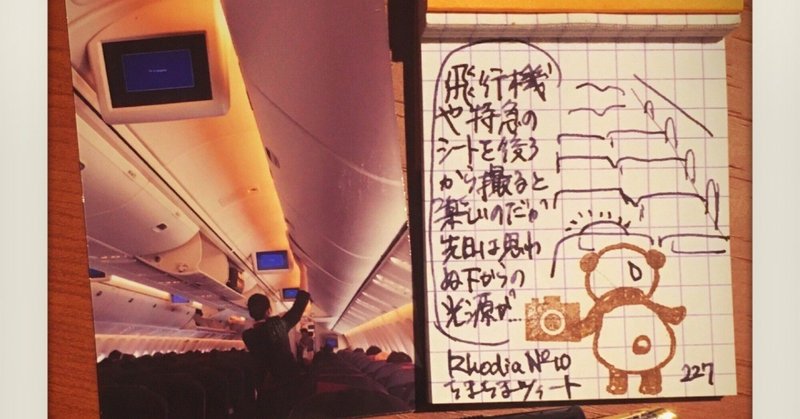 飛行機
や特急の
シートを後ろ
から撮ると
楽しいのだが
先日は思わ
ぬ下からの
光源が…
Rhodia №10
ちまちまツイート
227